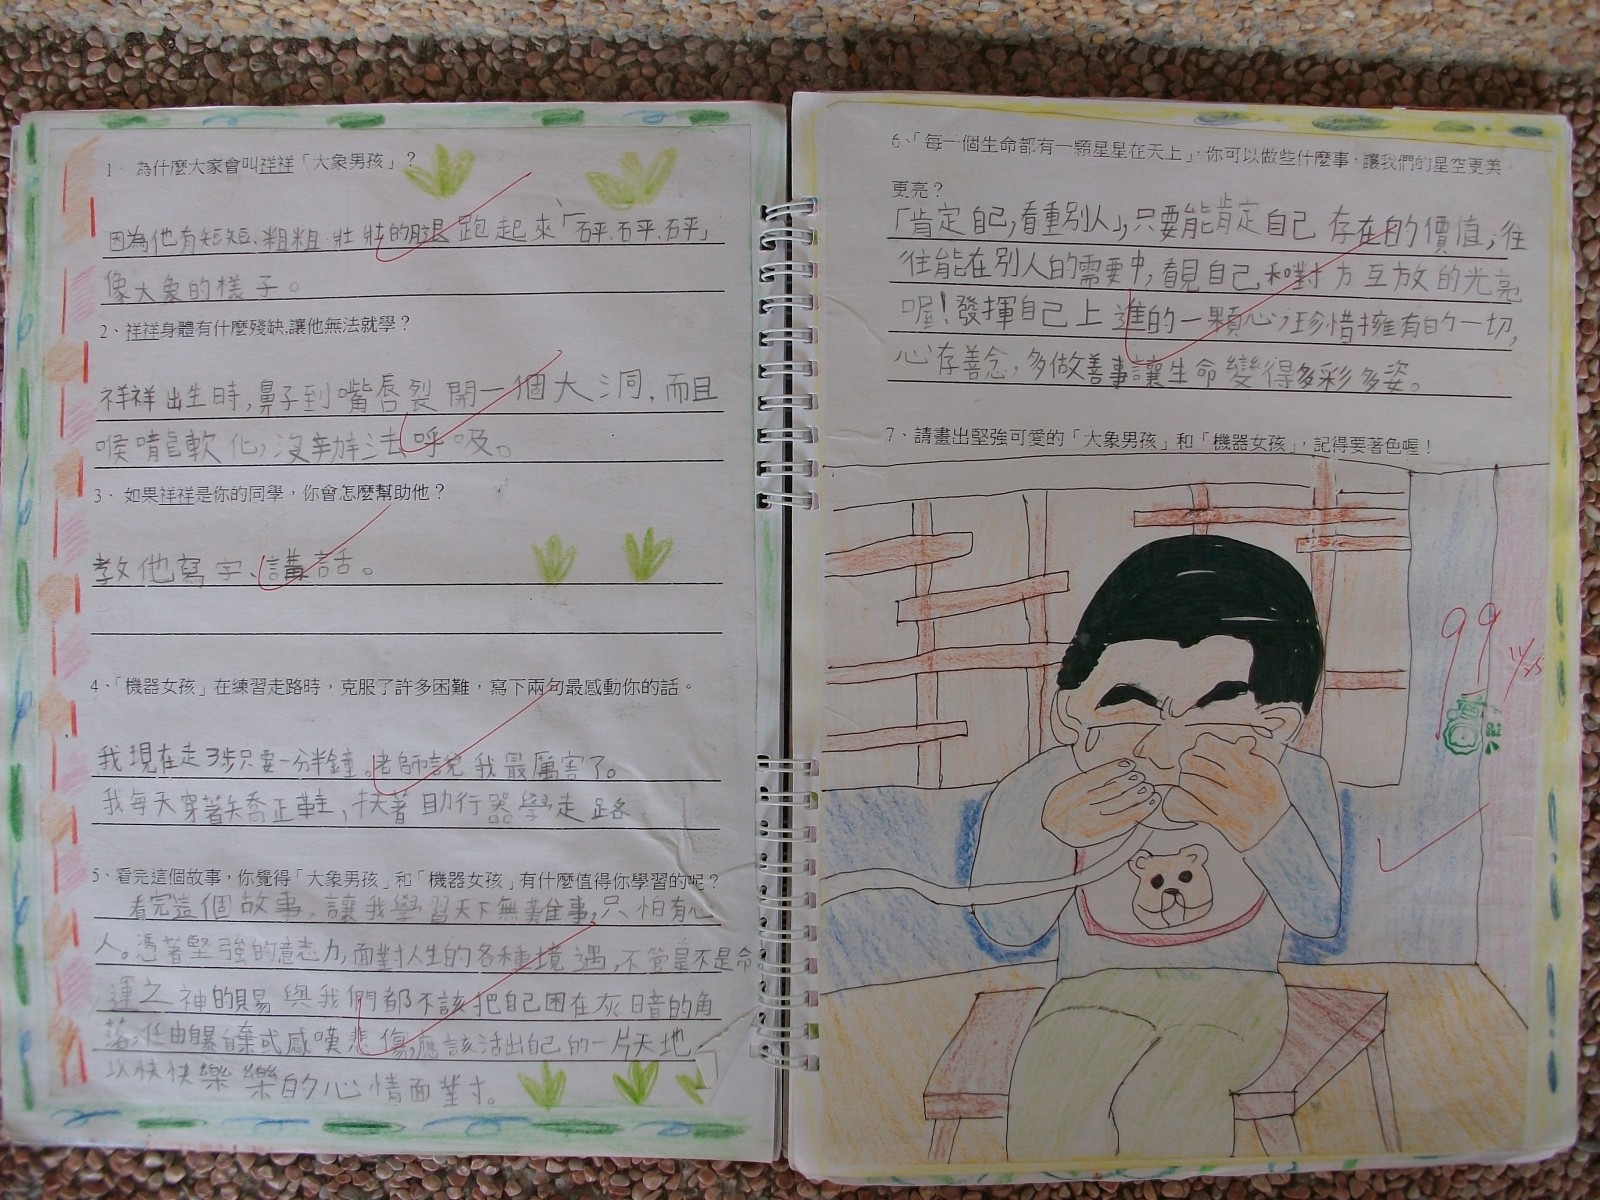 1、 為什麼大家會叫祥祥「大象男孩」？
因為他有短短、粗粗、壯壯的腿跑起來「砰、砰、砰」
像大象的樣子。
2、祥祥身體有什麼殘缺,讓他無法就學？
祥祥出生時,鼻子到嘴唇裂開一個大洞,而且
喉嚨軟化,沒辦法呼吸。
3、 如果祥祥是你的同學，你會怎麼幫助他？
教他寫字、講話。
4、「機器女孩」在練習走路時，克服了許多困難，寫下兩句最感動你的話。
我現在走3步只要一分半鐘。老師說我最厲害了。
我每天穿著矯正鞋,扶著助行器學走路
5、看完這個故事，你覺得「大象男孩」和「機器女孩」有什麼值得你學習的呢？
看完這個故事,讓我學習天下無難事,只怕有心
人。憑著堅強的意志力,面對人生的各種境遇,不管是不是命
運之神的賜與我們都不該把自己困在灰暗的角
落,任由自暴自棄或感嘆悲傷,應該活出自己的一片天地
以快快樂樂的心情面對。
6、「每一個生命都有一顆星星在天上」，你可以做些什麼事，讓我們的星空更美、
更亮？
「肯定自己,看重別人」,只要能肯定自己存在的價值,往
往能在別人的需要中,看見自己和對方互放的光亮
喔!發揮自己上進的一顆心,珍惜擁有的一切,
心存善念,多做善事讓生命變得多彩多姿。
7、請畫出堅強可愛的「大象男孩」和「機器女孩」，記得要著色喔！
99